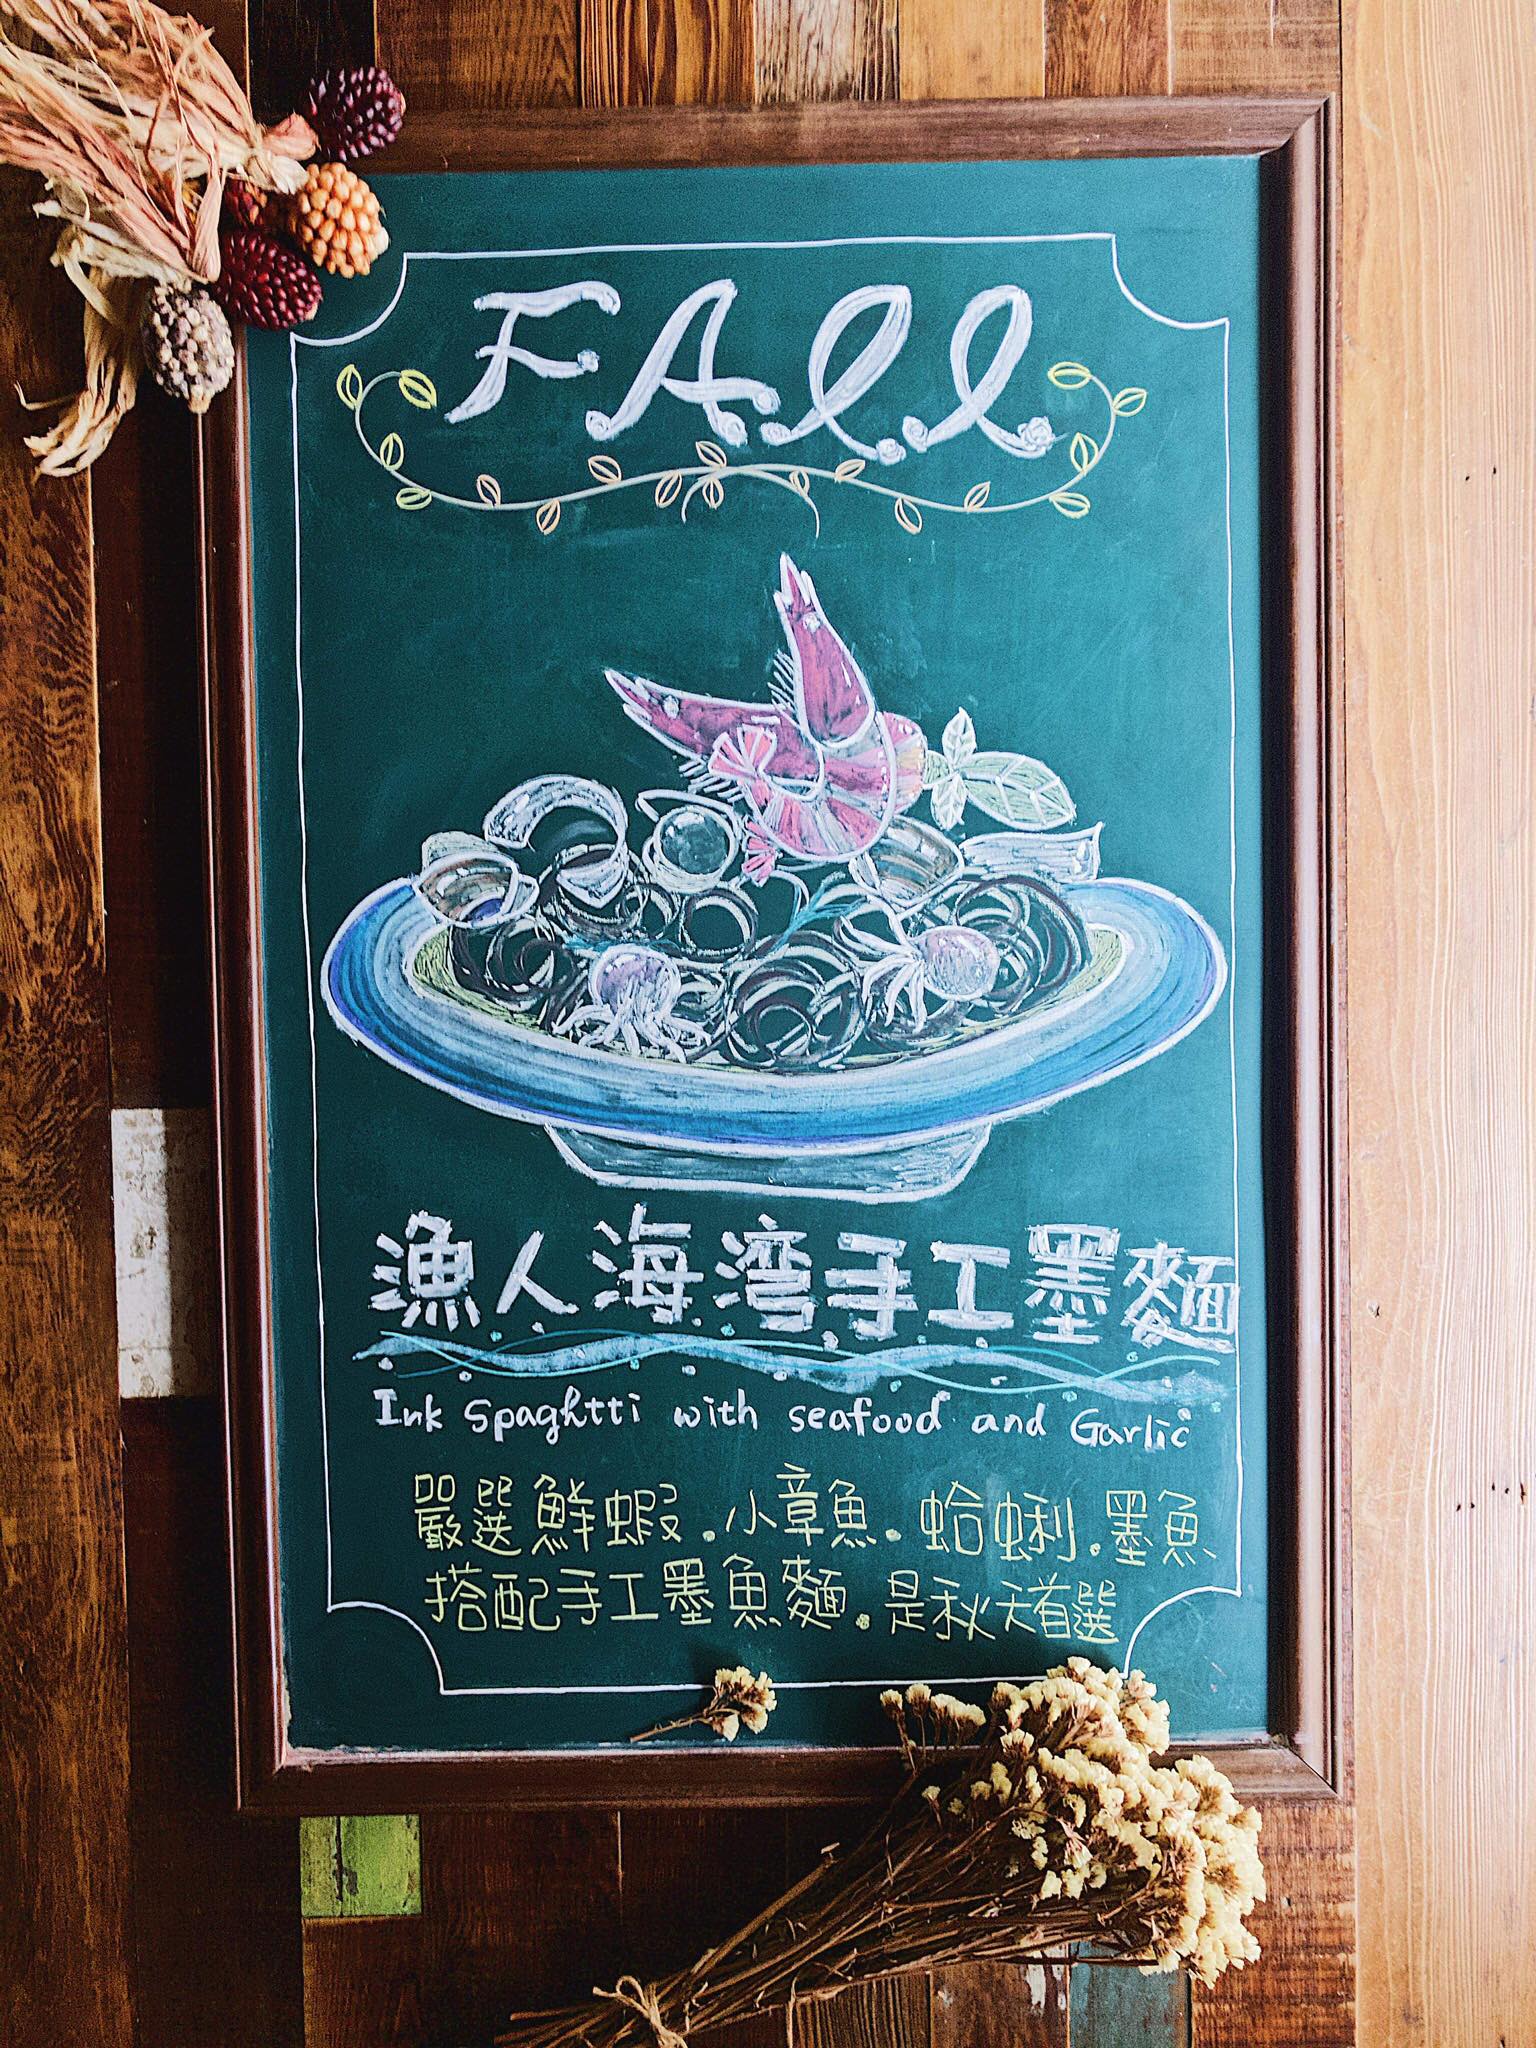 FAll
漁人海湾手工墨麵
Ink Spaghtti with seafood and Garlic
嚴選鮮蝦.小章魚.蛤蜊.墨魚
搭配手工墨魚麵.是秋天首選